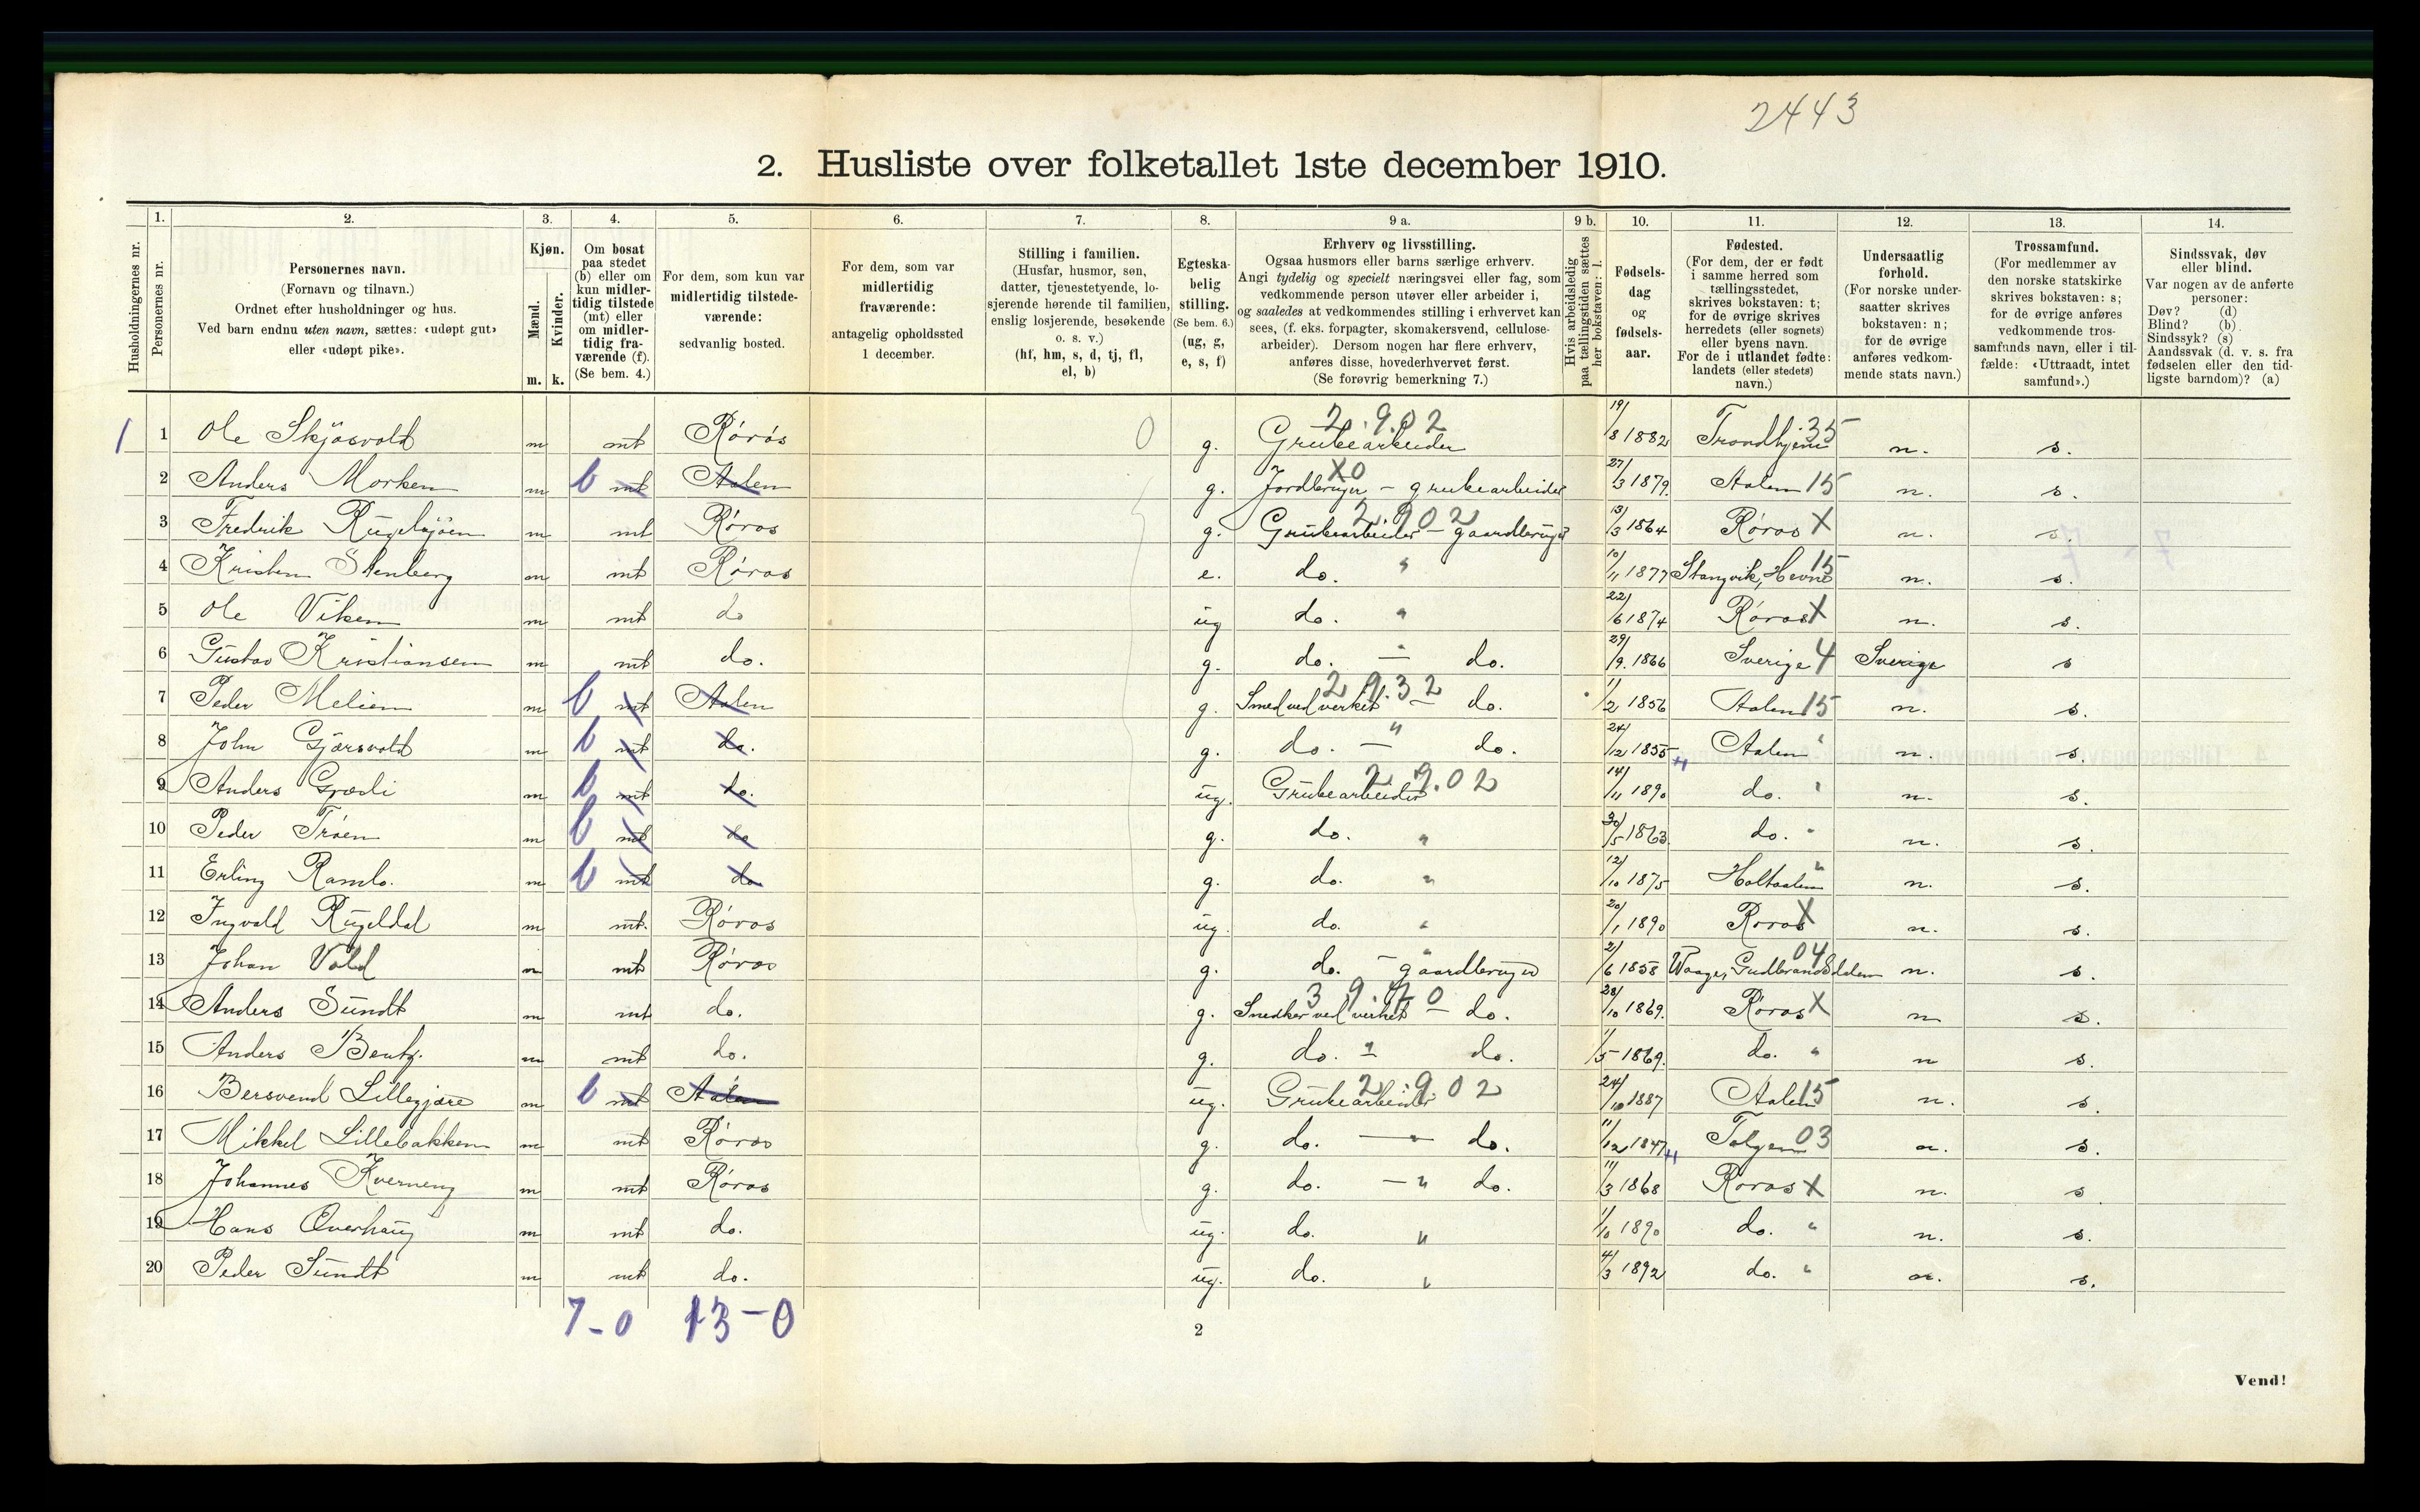 2443
2. Husliste over folketallet 1ste december 1910.
1. 2. 3. 4. 5. 6. 7. 8. 9 a. 9 b. 10. 11. 12. 13. 14.
Husholdningernes nr.
Personernes nr.
Personernes navn.
(Fornavn og tilnavn.)
Ordnet efter husholdninger og hus.
Ved barn endnu uten navn, sættes: «udøpt gut»
eller «udøpt pike».
Kjøn.
Mænd.
Kvinder.
m. k.
Om bosat
paa stedet
(b) eller om
kun midler-
tidig tilstede
(mt) eller
om midler-
tidig fra-
værende (f).
(Se bem. 4.)
For dem, som kun var
midlertidig tilstede-
værende:
sedvanlig bosted.
For dem, som var
midlertidig
fraværende:
antagelig opholdssted
1 december.
Stilling i familien.
(Husfar, husmor, søn,
datter, tjenestetyende, lo-
sjerende hørende til familien,
enslig losjerende, besøkende
o. s. v.)
(hf, hm, s, d, tj, fl,
el, b)
Egteska-
belig
stilling.
(Se bem. 6.)
(ug, g,
e, s, f)
Erhverv og livsstilling.
Ogsaa husmors eller barns særlige erhverv.
Angi tydelig og specielt næringsvei eller fag, som
vedkommende person utøver eller arbeider i,
og saaledes at vedkommendes stilling i erhvervet kan
sees, (f. eks. forpagter, skomakersvend, cellulose-
arbeider). Dersom nogen har flere erhverv,
anføres disse, hovederhvervet først.
(Se forøvrig bemerkning 7.)
Hvis arbeidsledig
paa tællingstiden sættes
her bokstaven: l.
Fødsels-
dag
og
fødsels-
aar.
Fødested.
(For dem, der er født
i samme herred som
tællingsstedet,
skrives bokstaven: t;
for de øvrige skrives
herredets (eller sognets)
eller byens navn.
For de i utlandet fødte:
landets (eller stedets)
navn.)
Undersaatlig
forhold.
(For norske under-
saatter skrives
bokstaven: n;
for de øvrige
anføres vedkom-
mende stats navn.)
Trossamfund.
(For medlemmer av
den norske statskirke
skrives bokstaven: s;
for de øvrige anføres
vedkommende tros-
samfunds navn, eller i til-
fælde: «Uttraadt, intet
samfund».)
Sindssvak, døv
eller blind.
Var nogen av de anførte
personer:
Døv? (d)
Blind? (b)
Sindssyk? (s)
Aandssvak (d. v. s. fra
fødselen eller den tid-
ligste barndom)? (a)
1 1 Ole Skjäsvold m mt Røros 0 g. 2.902 Grubearbeider 19/8 1882 Trondhjem 35 n. s.
2 Anders Morken m b mt Aalen g. X0 Jordbruger - grubearbeider 27/3 1879. Aalen 15 n. s.
3 Fredrik m mt Røros g. 2.902 Grubearbeider - gaardbruger 13/3 1864 Røros X n. s.
4 Kristen Stenberg m mt Røros e. do. " 10/11 1877 Stangvik, Hevne 15 n. s.
5 Ole Viken m mt do ug do. " 22/6 1874 Røros X n. s.
6 Gustav Kristiansen m mt do. g. do. - do. 29/9. 1866 Sverige 4 Sverige s
7 Peder Melien m b mt Aalen g. 2932 Smed ved verket - do. 11/2 1856 Aalen 15 n. s.
8 John Gjersvold m b mt do. g. do. - " do. 24/12 1855 Aalen " n. s.
9 Anders Græsli m b mt do. ug. 2.902 Grubearbeider 14/11 1890 do. " n. s.
10 Peder Trøen m b mt do g. do. " 30/5 1863 do. " n. s.
11 Erling Ramlo. m b mt do g. do. " 12/10 1875 Holtaalen " n. s.
12 Ingvald Rugeldal m mt. Røros ug. do. " 20/1 1890 Røros X n. s.
13 Johan Vold m mt Røros g. do. - " gaardbruger 2/6 1858 Waage, Gudbrandsdalen 04 n. s.
14 Anders Sundt m mt do. g. 39.40 Snedker ved verket - do. 28/10 1869. Røros X n s.
15 Anders m mt do. g. do. " do. 1/5 1869. do. " n s.
16 Bersvend Lillegjære m b mt Aalen ug. 2902 Grubearbeider 24/10 1887 Aalen 15 n. s.
17 Mikkel Lillebakken m mt Røros g. do. - " do. 11/12 1847 Tolgen 03 n. s.
18 Johannes Kverneng m mt Røros g. do. - " do. 11/3 1868 Røros X n. s
19 Hans Øverhaug m mt do. ug. do. " 1/10 1890 do. " n. s.
20 Peder Sundt m mt do. ug. do. " 4/3 1892 do. " n. s.
7-0 13-0
2
Vend!